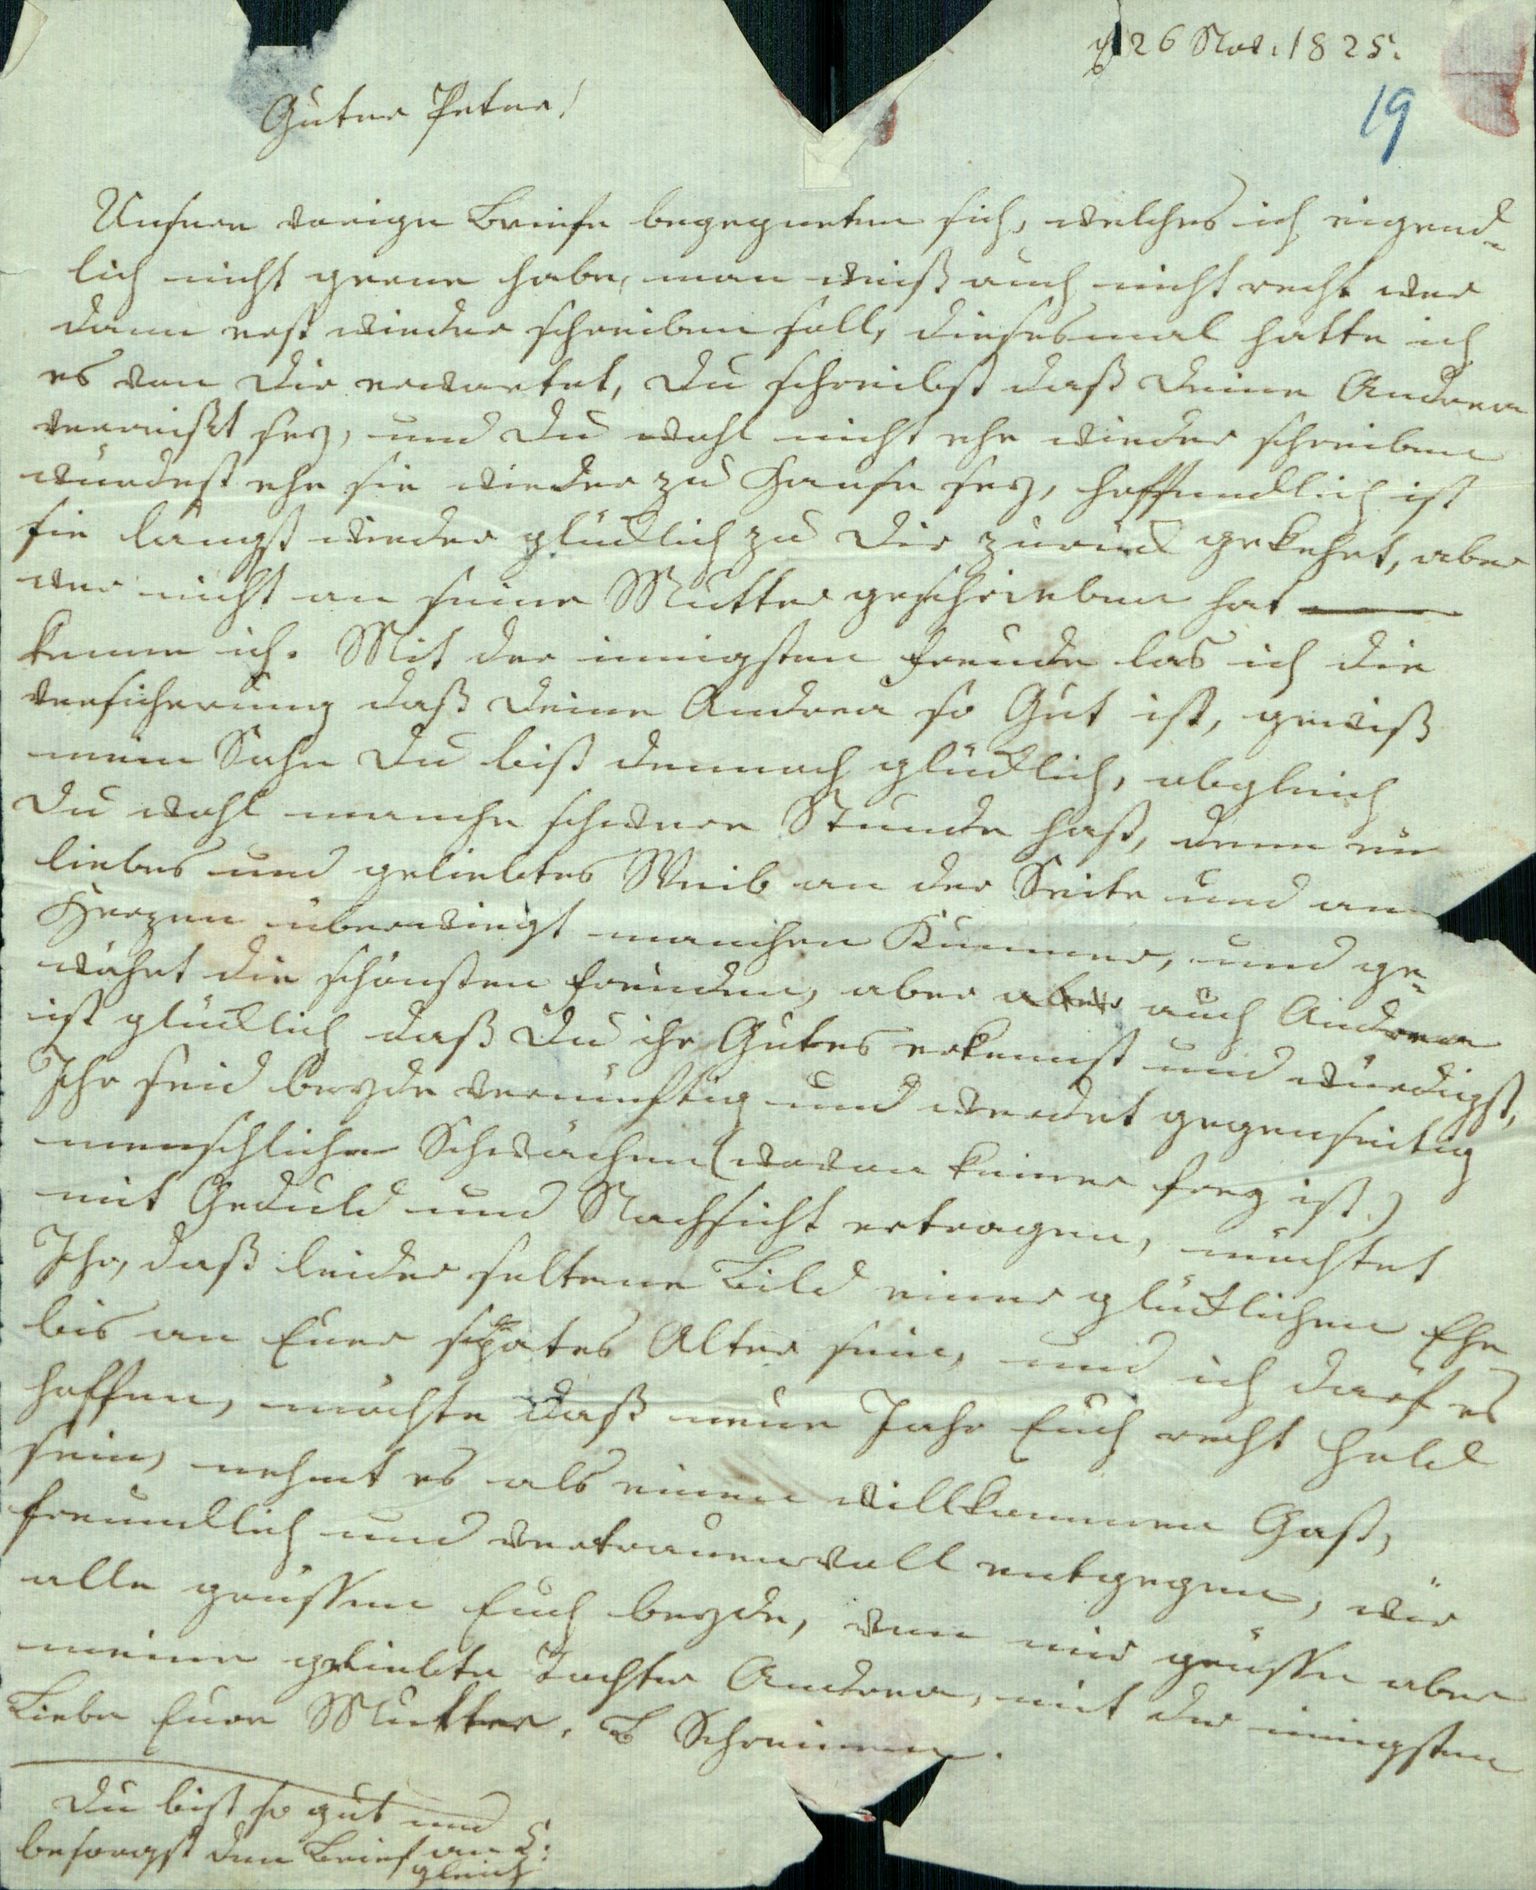 d 26 Nov: 1825.
19
Guter Peter!
Unsere vorige Briefe begegneten sich, welches ich eigend-
lich nicht gerne habe, man weiß auch nicht recht wer
dann erst wieder schreiben soll, diesesmal hatte ich
es von Dir erwartet, Du schreibst daß Deine Andrea
verreißt sey, und Du wohl nicht ehr wieder schreiben
würdest ehe sie wieder zu Hause sey, hoffendlich ist
sie längst wieder glücklich zu Dir zurück gekehrt, aber
wer nicht an seine Mutter geschrieben hat —
kenne ich. Mit der innigsten Freude las ich die
versicherung daß Deine Andrea so Gut ist, gewiß
mein Sohn Du bist dennoch glücklich, obgleich
Du wohl manche schwere Stunde hast, denn ein
liebes und geliebtes Weib an der Seite und am
Herzen überwiegt manchen Kummer, und ge-
währt die schönsten Freuden, aber auch Andrea
ist glücklich daß Du ihr Gutes erkennst und würdigst,
Ihr seid beyde vernünftig und werdet gegenseitig
menschliche Schwächen (wovon keiner frey ist)
mit Geduld und Nachsicht ertragen, möchtet
Ihr, daß leider seltene Bild einer glücklichen Ehe
bis an Euer spätes Alter sein, und ich darf es
hoffen, möchte daß neue Jahr Euch recht hold
sein, nehmt es als einen willkommen Gast,
freundlich und vertrauenvoll entgegen, wir
alle grüssen Euch beyde, von mir grüsse aber
meine geliebte Tochter Andrea, mit der innigsten
Liebe Eure Mutter. B Schreiner.
Du bist so gut und
besorgst den Brief an L:
gleich